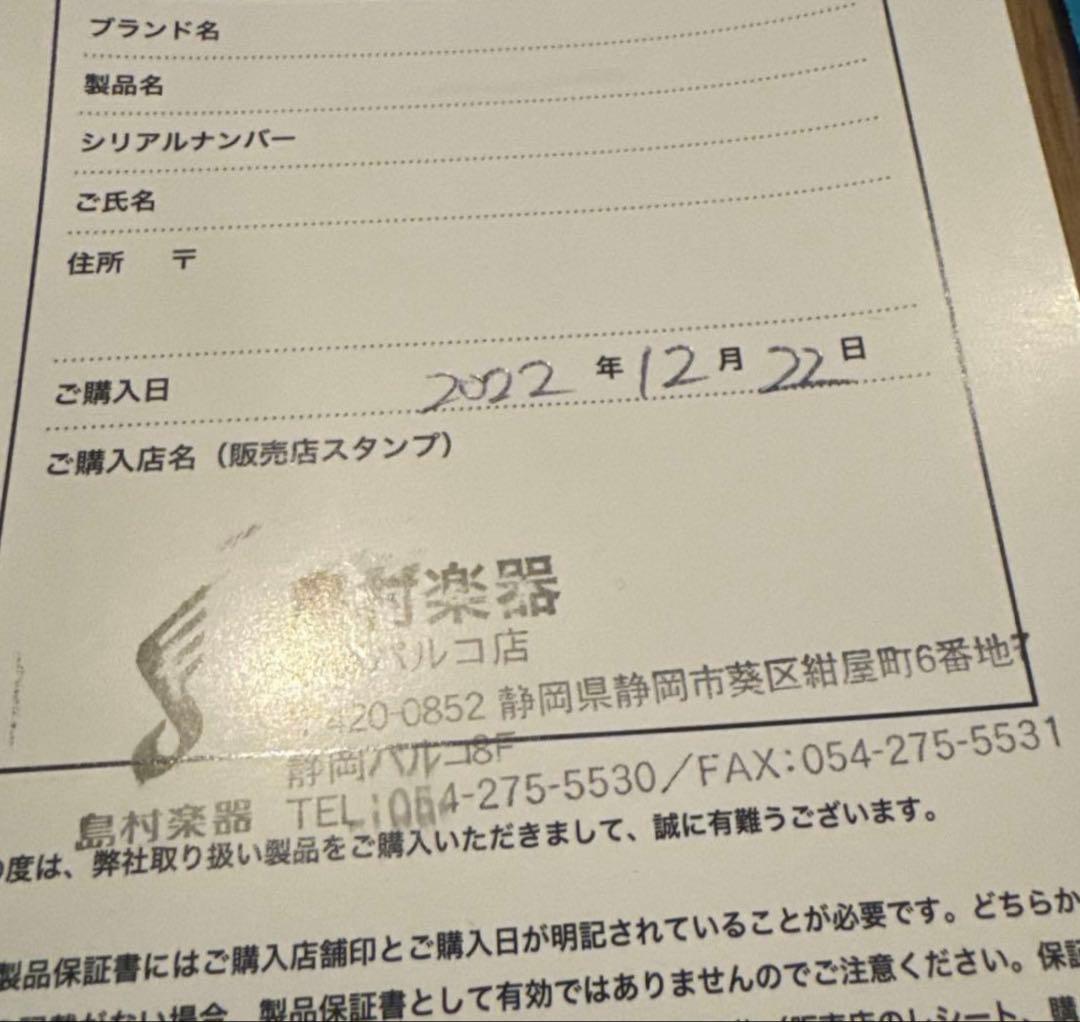 ブランド名
製品名
シリアルナンバー
ご氏名
住所 〒
ご購入日 2022 年 12 月 22 日
ご購入店名（販売店スタンプ）
村楽器
パルコ店
420-0852 静岡県静岡市葵区紺屋町6番地7
静岡パルコ8F
TEL:054-275-5530／FAX:054-275-5531
島村楽器
の度は、弊社取り扱い製品をご購入いただきまして、誠に有難うございます。
製品保証書にはご購入店舗印とご購入日が明記されていることが必要です。どちらか
記載がない場合、製品保証書として有効ではありませんのでご注意ください。保証
（販売店のレシート、購